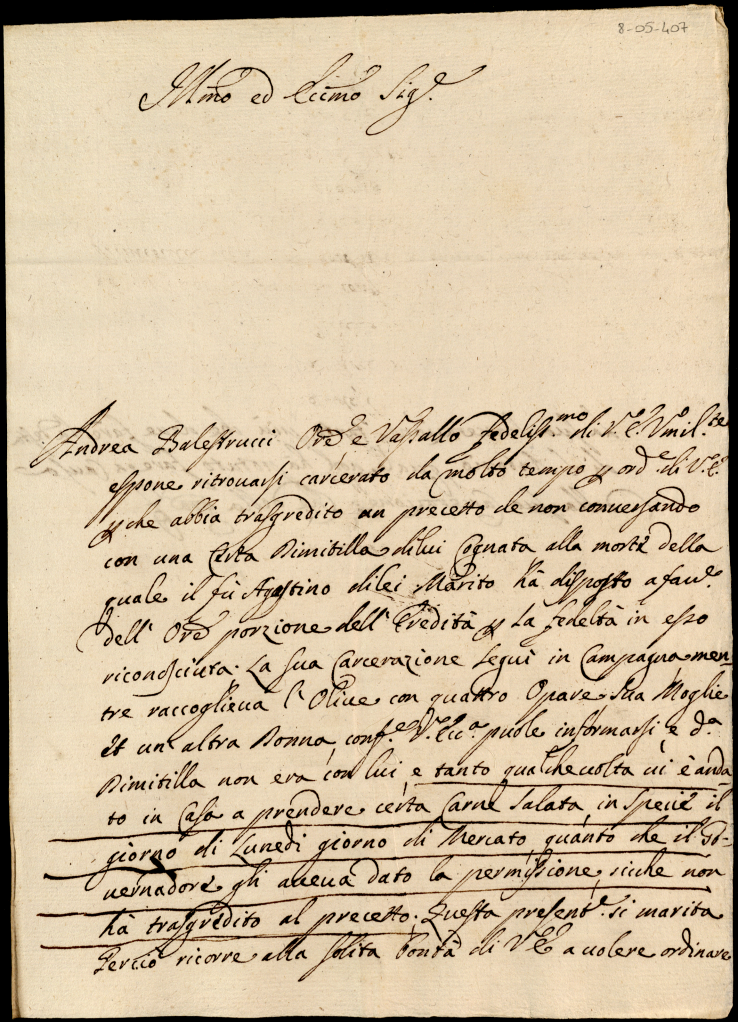 8-05-407
Ill.mo ed Ecc.mo Sig.e
Andrea Balestrucci Ore e Vassallo fedeliss.mo di V. E. Vmil.te
espone ritrouarsi carcerato da molto tempo p ord.e di V. E.
p che abbia trasgredito un precetto de non conuersando
con una Certa Dimitilla di lui Cognata alla morte della
quale il fù Agostino di lei Marito hà disposto a fau.e
dell' Ore porzione dell' Eredità p la fedeltà in esso
riconosciuta. La sua Carcerazione seguì in Campagna men-
tre raccoglieua l' Oliue con quattro Opare, sua Moglie
et un' altra Donna, conf.e V. Ecc.a puole informarsi e d.a
Dimitilla non era con lui, e tanto qualche uolta ui è anda
to in Casa a prendere certa Carne salata, in specie il
giorno di Lunedì giorno di Mercato, quanto che il Go-
uernadore gli aueua dato la permissione, sicche non
hà trasgredito al precetto. Questa present.e si marita
Perciò ricorre alla solita bontà di V. E. a uolere ordinare